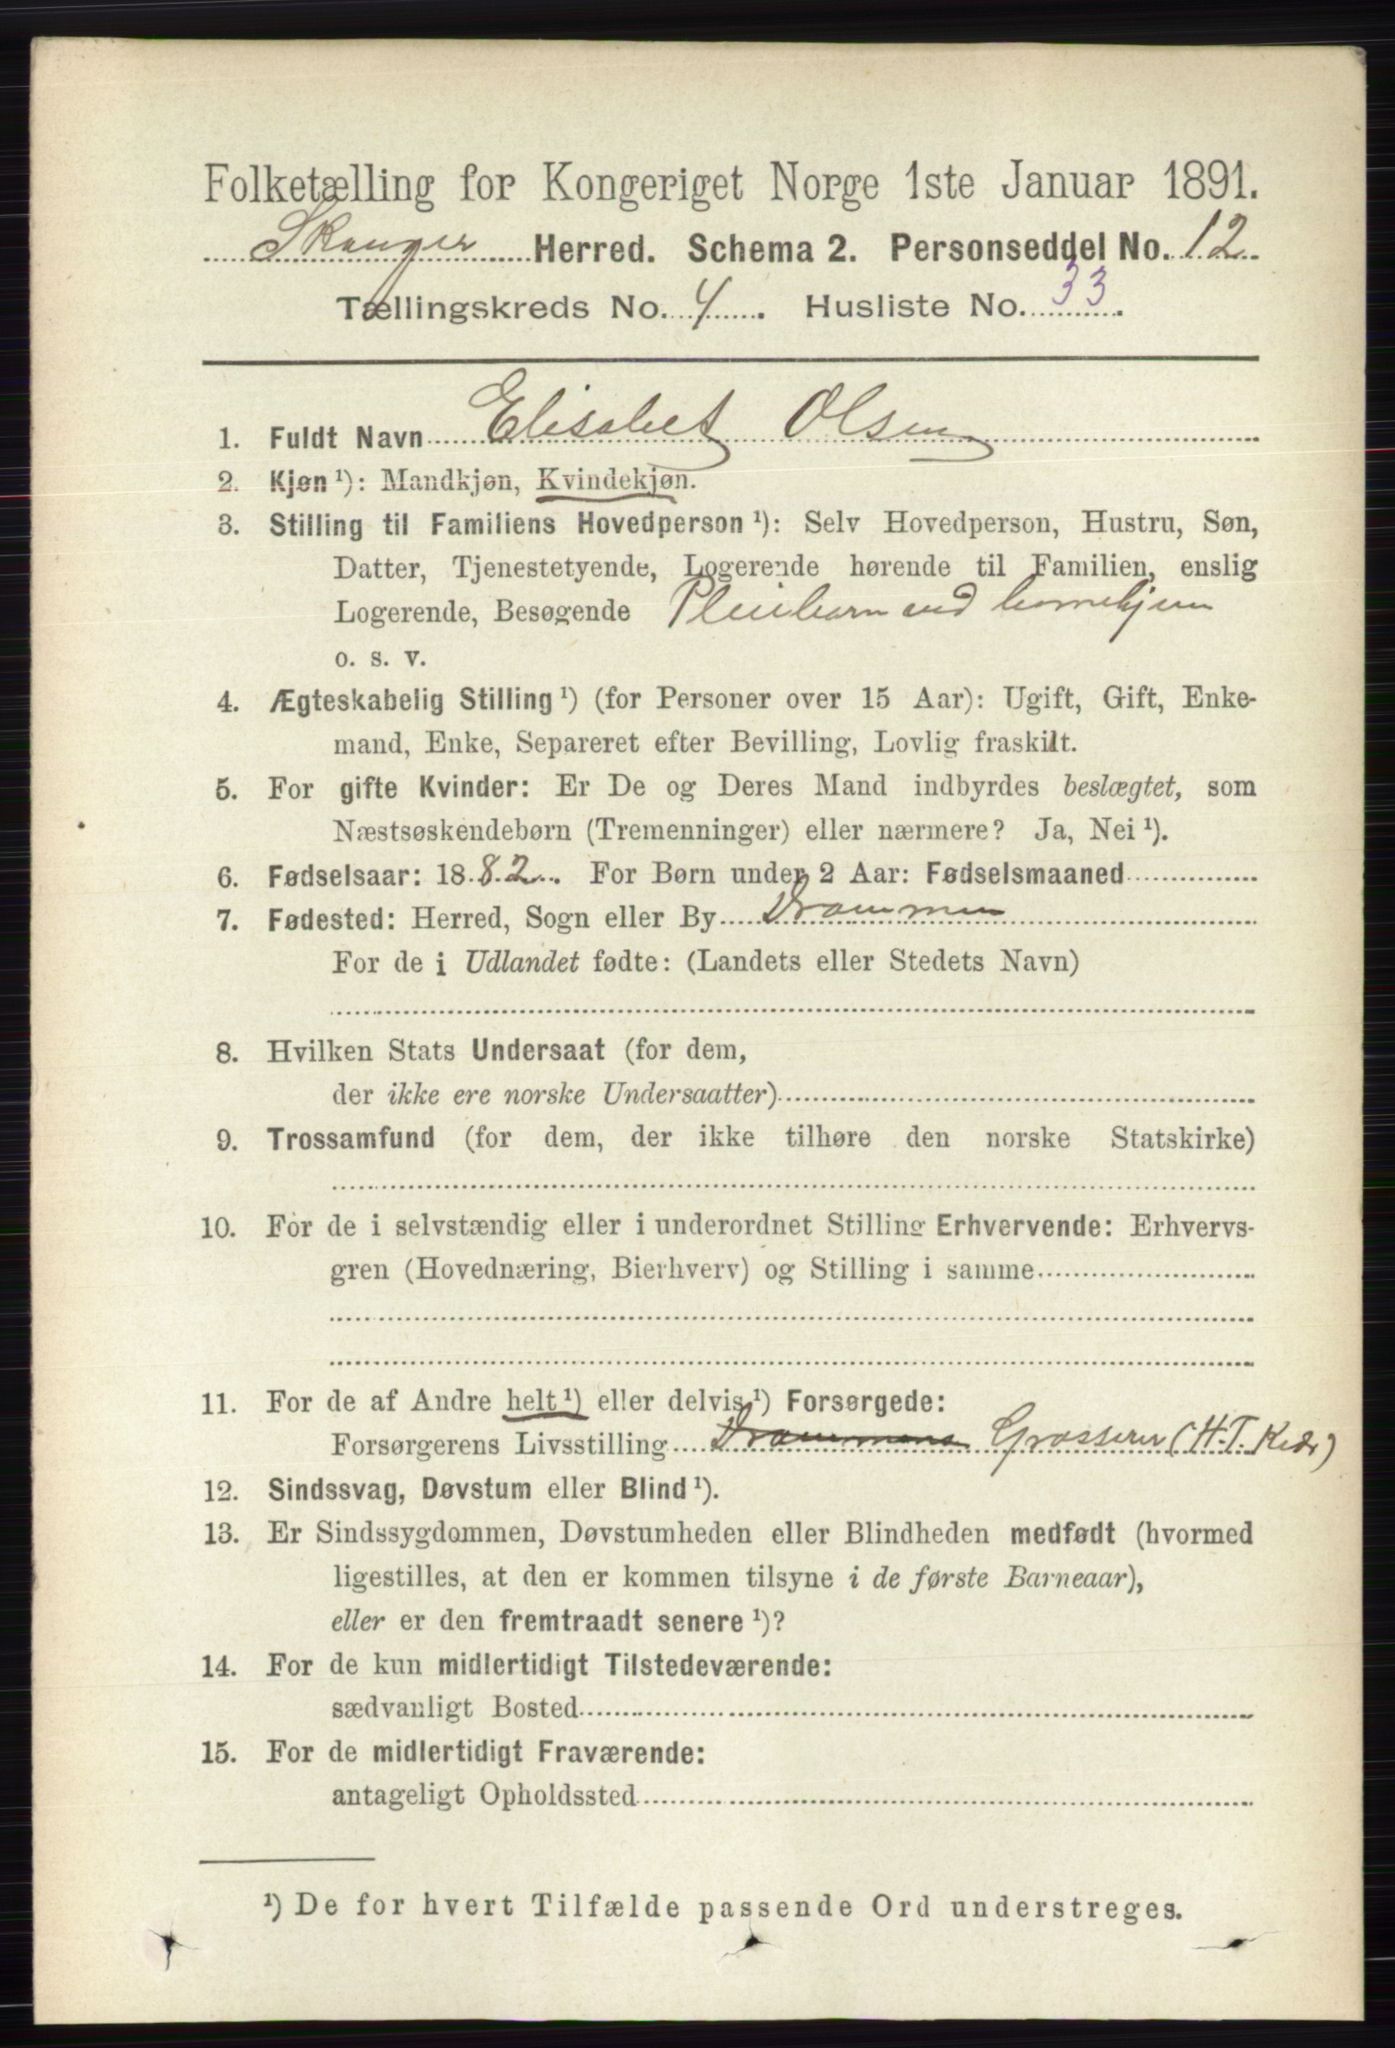 Folketælling for Kongeriget Norge 1ste Januar 1891.
Skauger Herred. Schema 2. Personseddel No. 12
Tællingskreds No. 4. Husliste No. 33.
1. Fuldt Navn Elisabet Olsen
2. Kjøn ¹): Mandkjøn, Kvindekjøn.
3. Stilling til Familiens Hovedperson ¹): Selv Hovedperson, Hustru, Søn,
Datter, Tjenestetyende, Logerende hørende til Familien, enslig
Logerende, Besøgende Pleiebarn ved
o. s. v.
4. Ægteskabelig Stilling ¹) (for Personer over 15 Aar): Ugift, Gift, Enke-
mand, Enke, Separeret efter Bevilling, Lovlig fraskilt.
5. For gifte Kvinder: Er De og Deres Mand indbyrdes beslægtet, som
Næstsøskendebørn (Tremenninger) eller nærmere? Ja, Nei ¹).
6. Fødselsaar: 1882. For Børn under 2 Aar: Fødselsmaaned
7. Fødested: Herred, Sogn eller By Drammen
For de i Udlandet fødte: (Landets eller Stedets Navn)
8. Hvilken Stats Undersaat (for dem,
der ikke ere norske Undersaatter)
9. Trossamfund (for dem, der ikke tilhøre den norske Statskirke)
10. For de i selvstændig eller i underordnet Stilling Erhvervende: Erhvervs-
gren (Hovednæring, Bierhverv) og Stilling i samme
11. For de af Andre helt ¹) eller delvis ¹) Forsørgede:
Forsørgerens Livsstilling Drammens Grosserer (H. T. Kiær)
12. Sindssvag, Døvstum eller Blind ¹).
13. Er Sindssygdommen, Døvstumheden eller Blindheden medfødt (hvormed
ligestilles, at den er kommen tilsyne i de første Barneaar),
eller er den fremtraadt senere ¹)?
14. For de kun midlertidigt Tilstedeværende:
sædvanligt Bosted
15. For de midlertidigt Fraværende:
antageligt Opholdssted
¹) De for hvert Tilfælde passende Ord understreges.